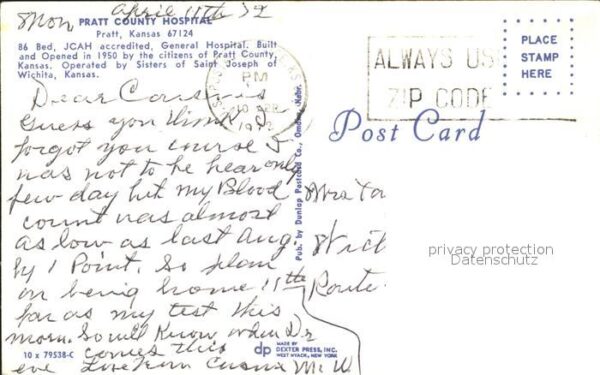 Mon April 11th
PRATT COUNTY HOSPITAL
Pratt, Kansas 67124
86 Bed, JCAH accredited, General Hospital. Built
and Opened in 1950 by the citizens of Pratt County,
Kansas. Operated by Sisters of Saint Joseph of
Wichita, Kansas.
Dear Cousins
Guess you think I
forgot you
was not to be hear only
few day but my Blood
count was almost
as low as last Aug
by 1 Point. So plan
on being home 11th
far as my test this
morn. So will Know when Dr
comes this
eve Love Fern
10 x 79538-C
Pub. by Dunlap Postcard Co., Omaha, Nebr.
dp MADE BY
DEXTER PRESS, INC.
WEST NYACK, NEW YORK
PM
ALWAYS US
ZIP CODE
PLACE
STAMP
HERE
Post Card
Mrs
Route
privacy protection
Datenschutz